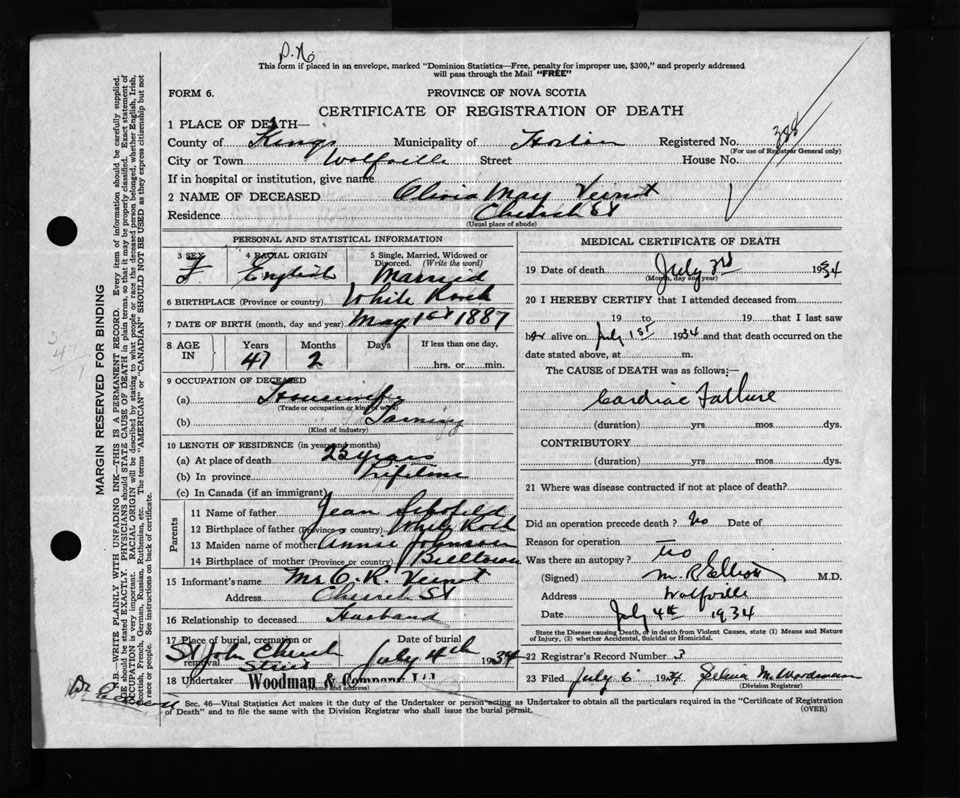 P.N.
This form if placed in an envelope, marked "Dominion Statistics—Free, penalty for improper use, $300," and properly addressed
will pass through the Mail "FREE"
FORM 6.
PROVINCE OF NOVA SCOTIA
CERTIFICATE OF REGISTRATION OF DEATH
388
1 PLACE OF DEATH—
County of Kings Municipality of Horton Registered No.
(For use of Registrar General only)
City or Town Wolfville Street House No.
If in hospital or institution, give name
2 NAME OF DECEASED Olivia May Veinot
Residence Church St
(Usual place of abode)
PERSONAL AND STATISTICAL INFORMATION
3 SEX 4 RACIAL ORIGIN 5 Single, Married, Widowed or
Divorced. (Write the word)
F. English Married
6 BIRTHPLACE (Province or country) White Rock
7 DATE OF BIRTH (month, day and year) May 1st 1887
8 AGE IN Years Months Days If less than one day,
47 2 hrs. or min.
9 OCCUPATION OF DECEASED
(a) Housewife
(Trade or occupation or kind of work)
(b) Farming
(Kind of industry)
10 LENGTH OF RESIDENCE (in years and months)
(a) At place of death 23 years
(b) In province Lifetime
(c) In Canada (if an immigrant)
Parents
11 Name of father Jean Schofield
12 Birthplace of father (Province or country) White Rock
13 Maiden name of mother Annie Johnson
14 Birthplace of mother (Province or country) Billtown
15 Informant's name Mr O. R. Veinot
Address Church St
16 Relationship to deceased Husband
17 Place of burial, cremation or Date of burial
removal St John Church Street July 4th 1934
18 Undertaker Woodman & Company Ltd.
(Name and address)
MEDICAL CERTIFICATE OF DEATH
19 Date of death July 3rd 1934
(Month, day and year)
20 I HEREBY CERTIFY that I attended deceased from
19 to 19 that I last saw
her alive on July 1st 1934 and that death occurred on the
date stated above, at m.
The CAUSE of DEATH was as follows:—
Cardiac Failure
(duration) yrs mos. dys.
CONTRIBUTORY
(duration) yrs. mos. dys.
21 Where was disease contracted if not at place of death?
Did an operation precede death? No Date of
Reason for operation
Was there an autopsy? No
(Signed) M. R. Elliott M.D.
Address Wolfville
Date July 4th 1934
State the Disease causing Death, or in death from Violent Causes, state (1) Means and Nature
of Injury, (2) whether Accidental, Suicidal or Homicidal.
22 Registrar's Record Number 3
23 Filed July 6 1934 M. Woodman
(Division Registrar)
Sec. 46—Vital Statistics Act makes it the duty of the Undertaker or person acting as Undertaker to obtain all the particulars required in the "Certificate of Registration
of Death" and to file the same with the Division Registrar who shall issue the burial permit. (OVER)
MARGIN RESERVED FOR BINDING
N.B.—WRITE PLAINLY WITH UNFADING INK—THIS IS A PERMANENT RECORD. Every item of information should be carefully supplied.
AGE should be stated EXACTLY. PHYSICIANS should STATE CAUSE OF DEATH in plain terms, so that it may be properly classified. Exact statement of
OCCUPATION is very important. RACIAL ORIGIN will be described by stating to what people or race the deceased person belonged, whether English, Irish,
Scottish, French, German, Russian, Ruthenian, etc. The terms "AMERICAN" or "CANADIAN" SHOULD NOT BE USED as they express citizenship but not
race or people. See instructions on back of certificate.